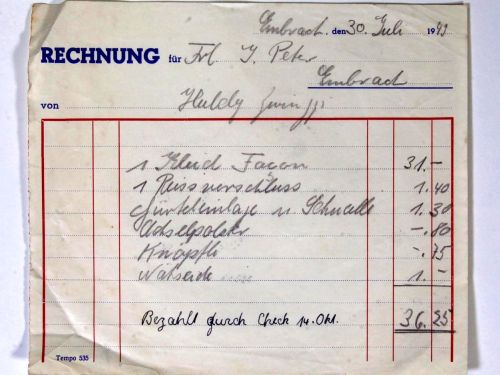 Embrach, den 30. Juli 1943
RECHNUNG für Frl. J. Peter
Embrach
von Huldy
1 Kleid Façon 31.-
1 Reissverschluss 1.40
Gürteleinlage u Schnalle 1.30
Achselpolster -.80
Knöpfli -.75
Nähseide 1.-
Bezahlt durch Check 14. Okt. 36.25
Tempo 535